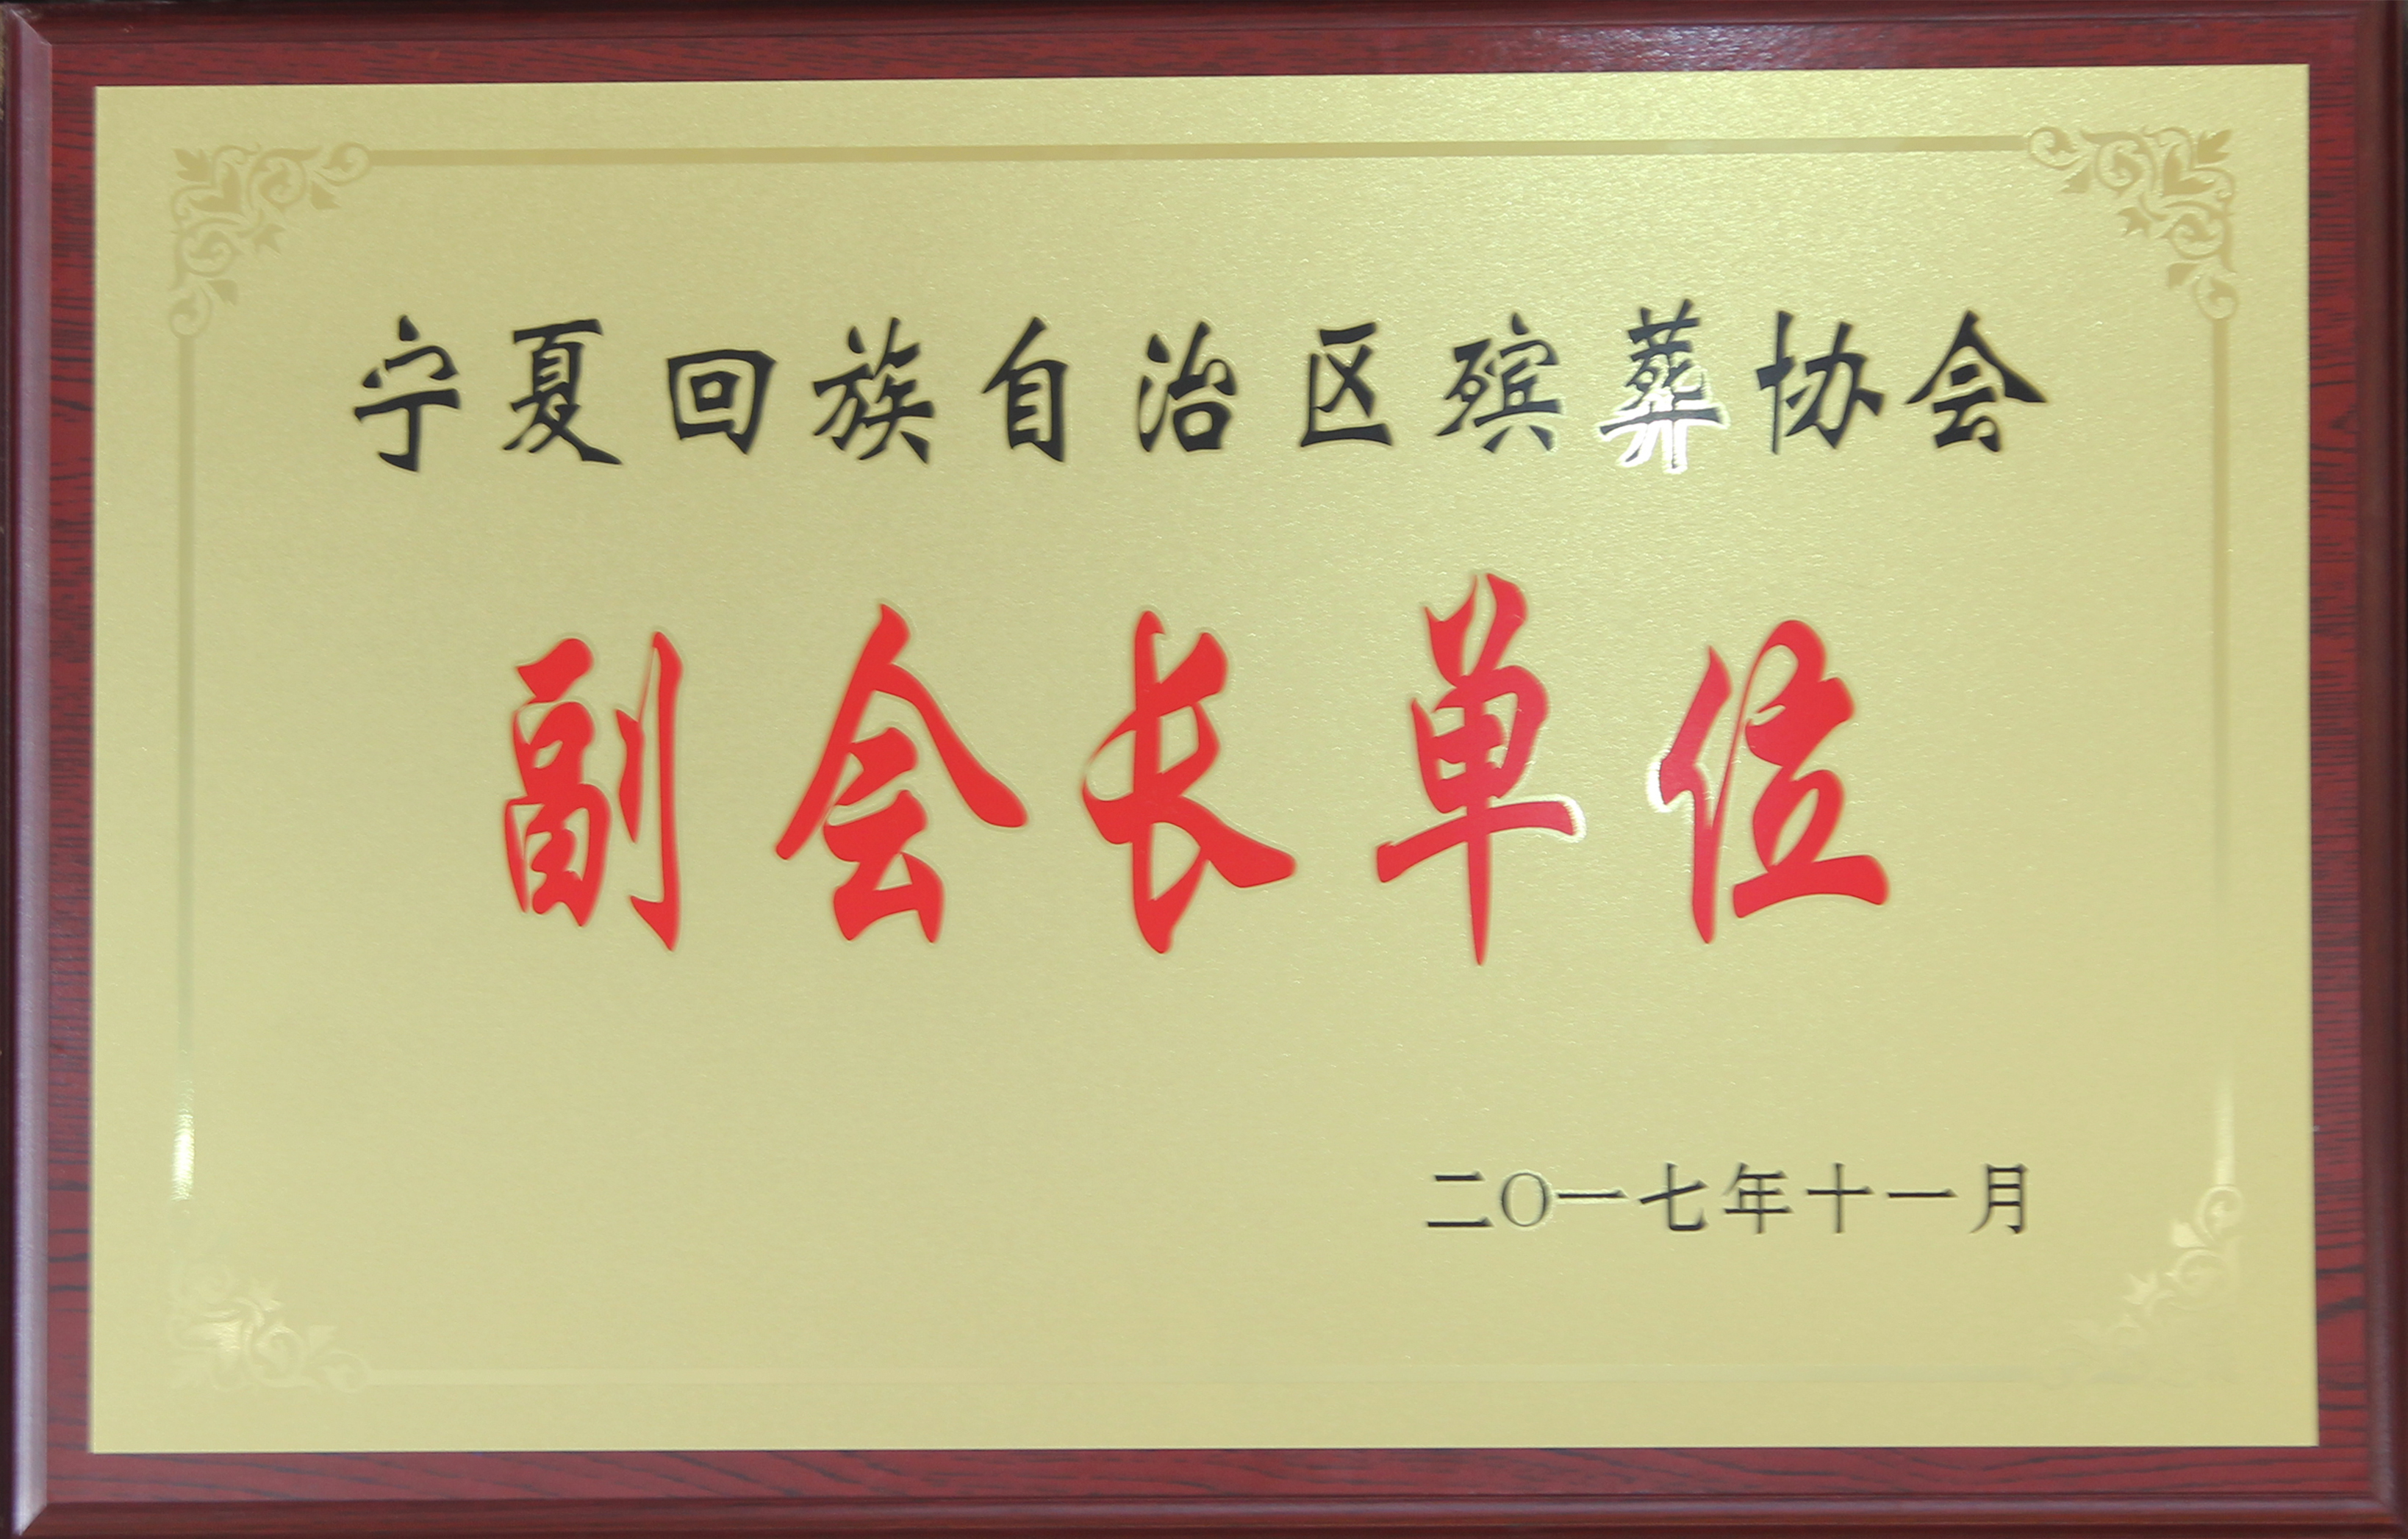 宁夏回族自治区殡葬协会
副会长单位
二〇一七年十一月